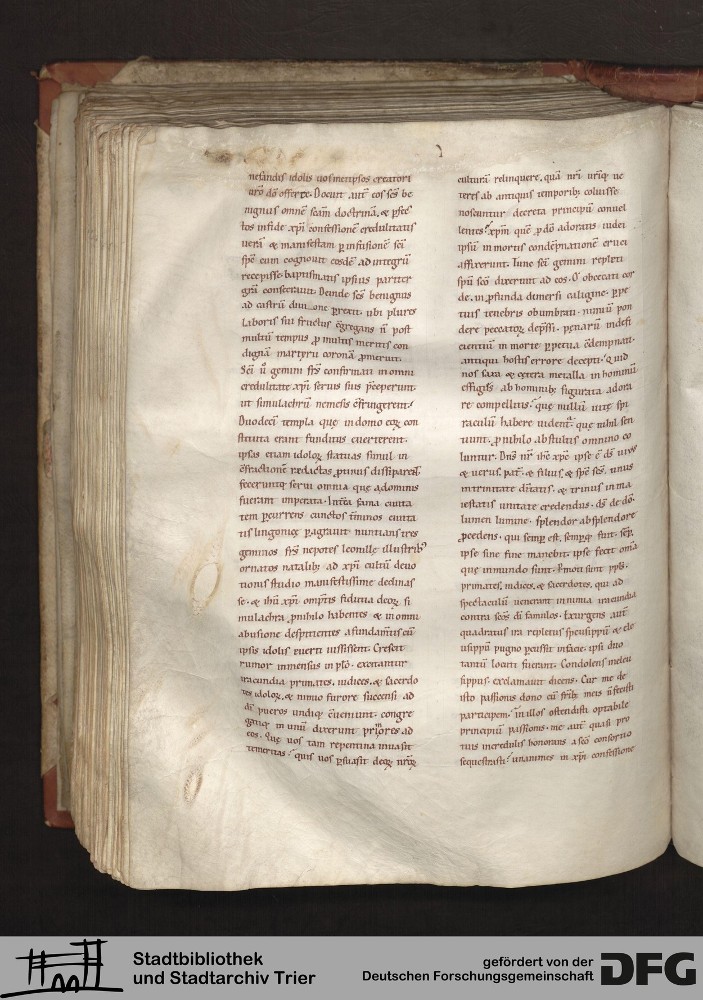 nefandis idolis uosmetipsos creatori
uro dō offerte. Docuit aut̄ eos sc̄s be
nignus omnē sc̄am doctrinā, & ꝑfec
tos in fide xp̄i confessionē credulitatis
uerā & manifestam ꝑ infusionē sc̄i
sp̄c eum cognouit eosdē ad integrū
recepisse. baptismatis ipsius pariter
grā consecrauit. Deinde sc̄s benignus
ad castrū diui one ꝑrexit. ubi plures
laboris sui fructus c̄gregans n̄ post
multū tempus ꝓ multis meritis con
dignā martyrii coronā ꝓmeruit.
Sc̄i u̇ gemini fr̄s confirmati in omni
credulitate xp̄i seruis suis p̄ceperunt
ut simulachrū nemesis c̄fringerent.
Duodeci templa quę in domo eoꝝ con
stituta erant funditus euerterent.
ipsas etiam idoloꝝ statuas simul in
c̄fractionē redactas ꝓtinus dissiparent
feceruntq; serui omnia quę a dominis
fuerant imperata. Int̄ea fama ciuita
tem ꝑcurrens cunctos t̄minos ciuita
tis lingonicę ꝑagrauit nuntians tres
geminos fr̄s nepotes leonillę illustribꝰ
ornatos natalibꝫ ad xp̄i cultū deuo
tionis studio manifestissime declinas
se. & ihū xp̄i omp̄tis fiducia deoꝝ si
mulachra ꝓ nihilo habentes & in omni
abusione despicientes a fundam̄tis cū
ipsis idolis euerti iussissent. Crescit
rumor inmensus in pl̄o. excitantur
iracundia primates. iudices. & sacerdo
tes idoloꝝ. & nimio furore succensi ad
d̄i pueros undiqꝫ c̄ueniunt. congre
gatiq; in unū dixerunt priores ad
eos. Quę uos tam repentina inuasit
temeritas. quis uos ꝑsuasit deoꝝ nr̄oꝝ
culturā relinquere. quā nr̄i ur̄iq; ue
teres ab antiquis temporibꝫ coluisse
noscuntur decreta principū conuel
lentes. xp̄m quē ꝓ dō adoratis iudei
ipsū in mortis condēpnatione cruci
affixerunt. Tunc sc̄i gemini repleti
sp̄u sc̄o dixerunt ad eos. O obcecati cor
de. in ꝓfunda dimersi caligine. ꝑpe
tuis tenebris obumbrati. nimiū pon
dere peccatoꝝ dep̄ssi. penarū indefi
cientiū in morte ꝑpetua c̄dempnati.
antiqui hostis errore decepti. Quid
nos saxa & cetera metalla in hominū
effigiē ab hominibꝫ figurata adora
re compellitis. quę nullū uitę spi
raculū habere uident᷑. quę nihil sen
tiunt. ꝓ nihilo absultis omnino co
luntur. Dn̄s nr̄ ih̄c xp̄c ipse ē d̄s uiuꝰ
& uerus. pat̄. & filius. & sp̄c sc̄s. unus
in trinitate dēitatis. & trinus in ma
iestatis unitate credendus. d̄s de dō.
lumen lumine. splendor ab splendore
ꝓcedens. qui semꝑ est. semꝑq; fuit. sēꝑ
ipse sine fine manebit. ipse fecit om̄a
que in mundo sunt. P̄moti sunt ppl̄i.
primates. iudices. & sacerdotes. qui ad
spectaculū uenerant in nimia iracundia
contra sc̄os d̄i famulos. Exurgens aut̄
quadratus ira repletus speusippū & ele
usippū pugno ꝑcussit in facie. ipsi duo
tantū locuti fuerant. Condolens meleu
sippus. exclamauit dicens. Cur me de
isto passionis dono cū fr̄ibꝫ meis n̄ fecisti
participem. in illos ostendisti optabile
principiū passionis. me aut̄ quasi pro
tuis incredulis honorans a sc̄o consortio
sequestrasti. unanimes in xp̄i confessione
Stadtbibliothek
und Stadtarchiv Trier
gefördert von der
Deutschen Forschungsgemeinschaft
DFG